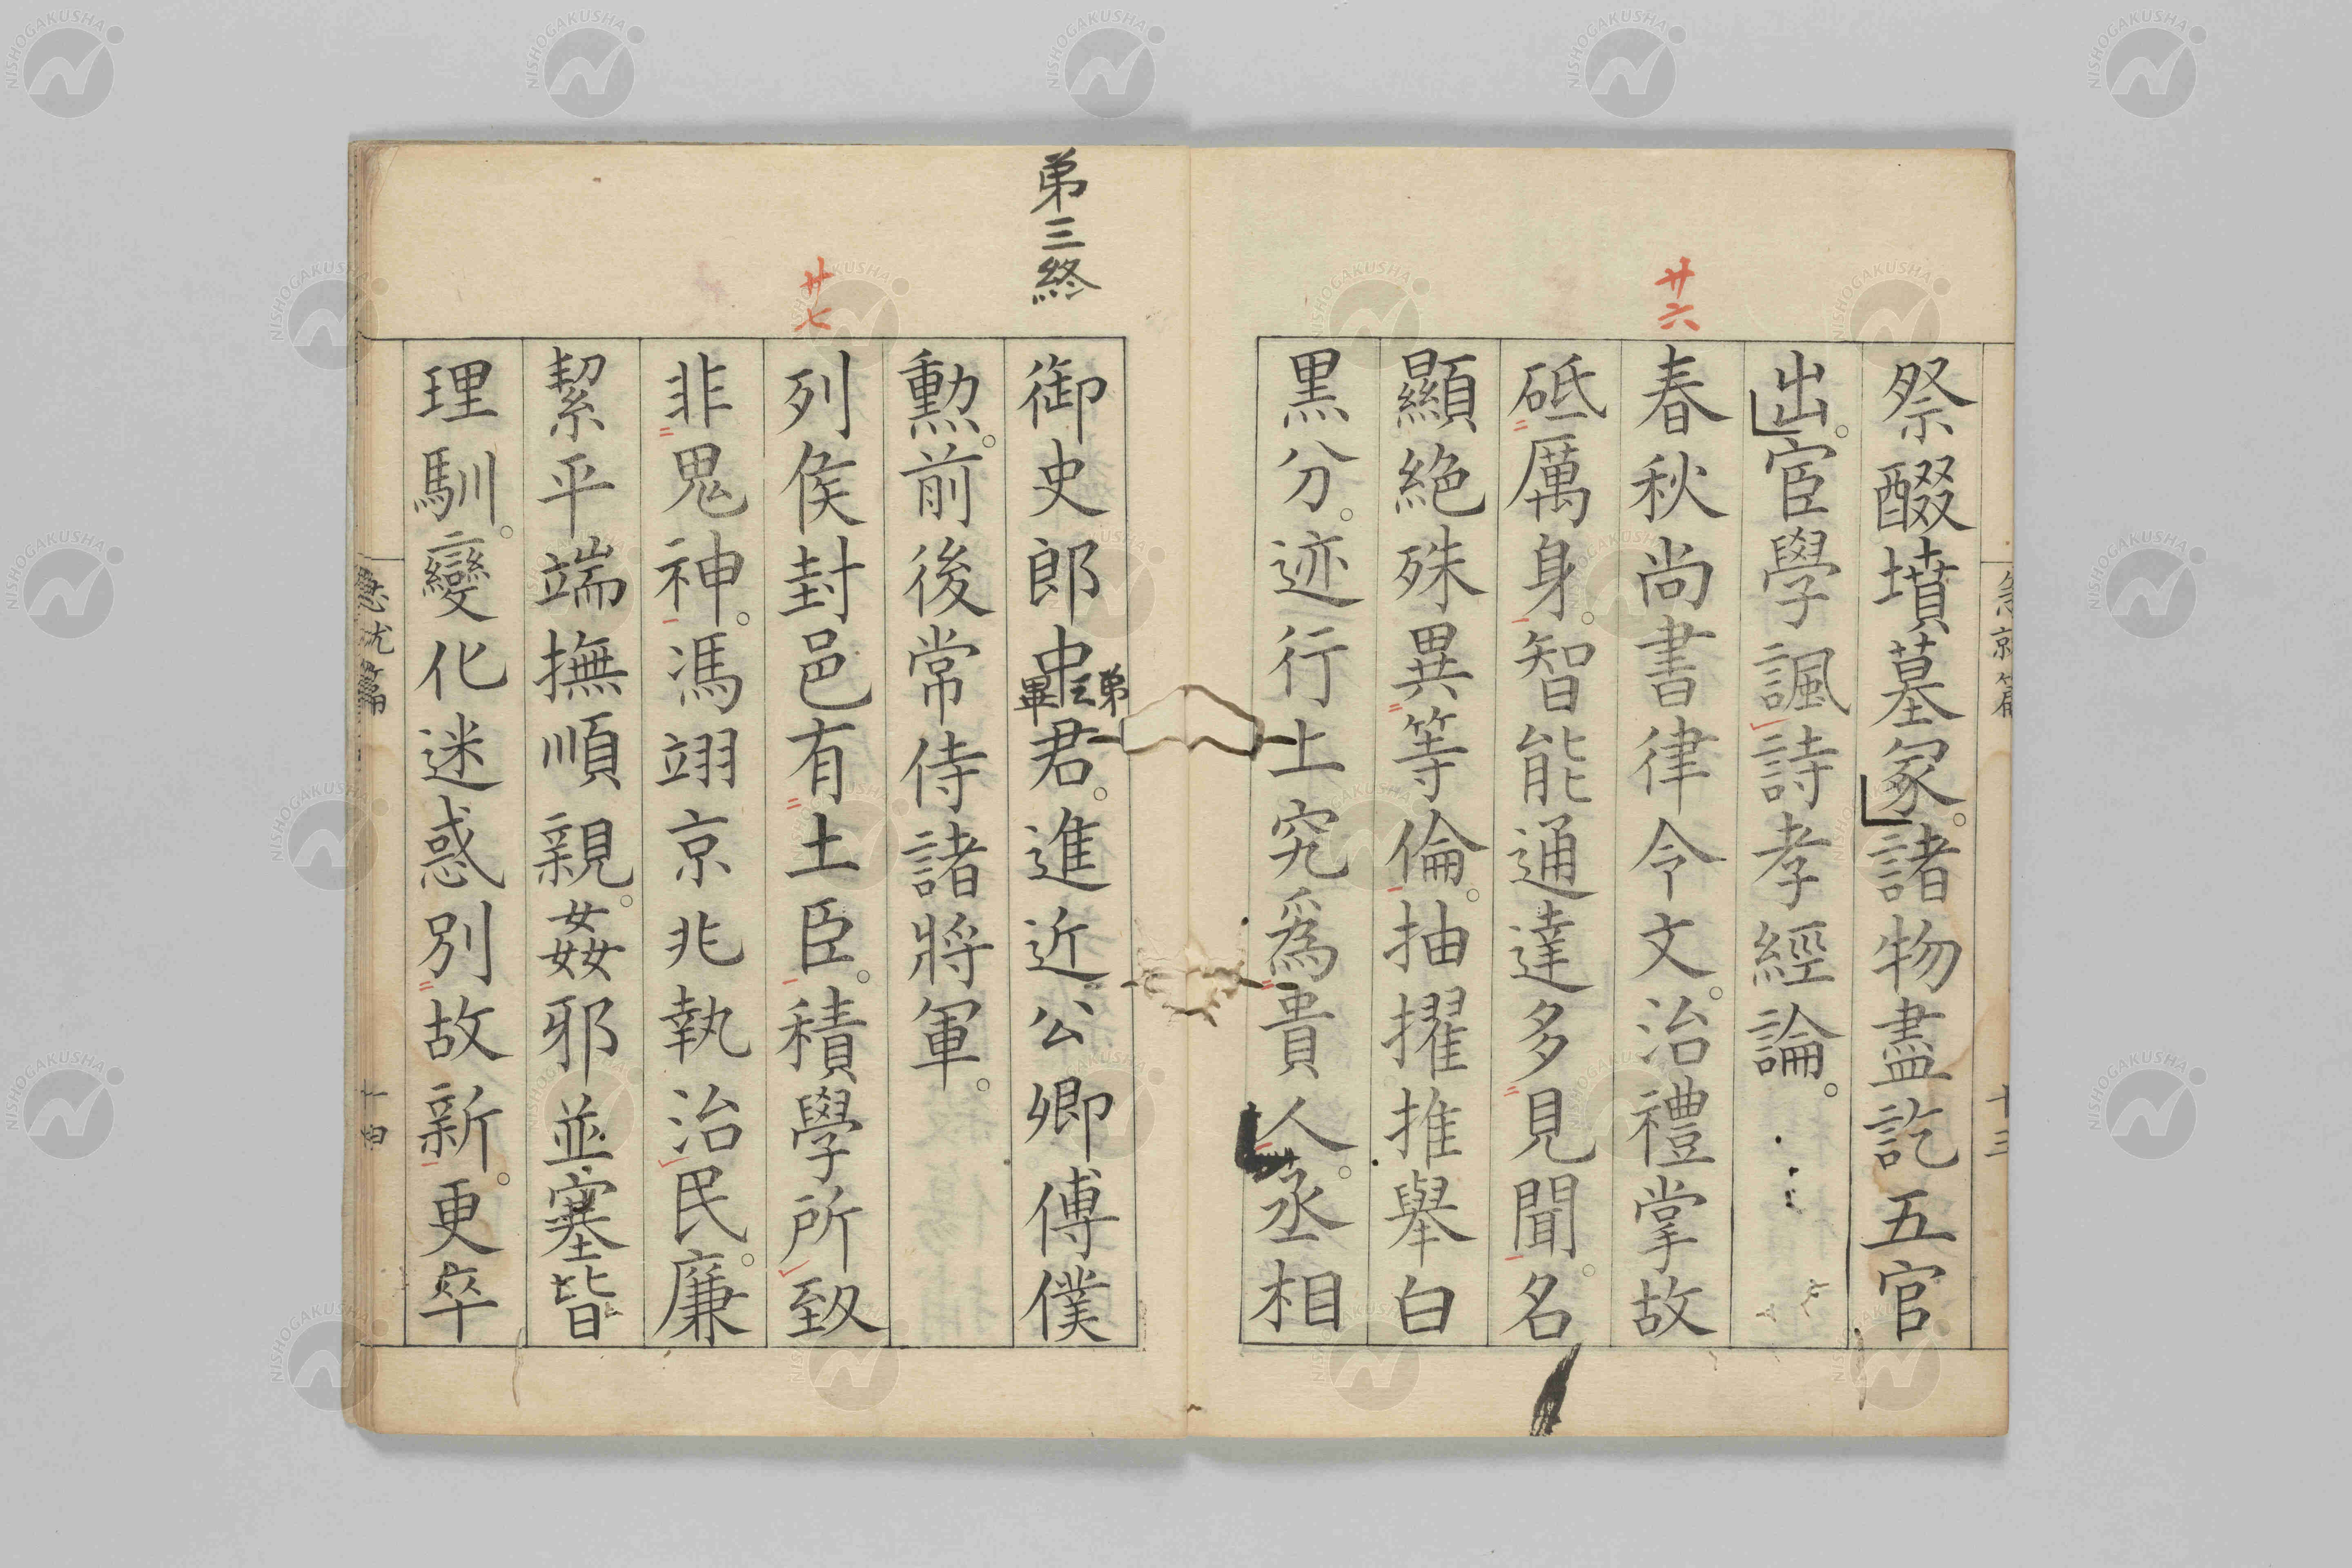 急就篇
十三
祭醊墳墓冢。諸物盡訖五官
出。宦學諷詩孝經論。
廿六
春秋尚書律令文。治禮掌故
砥厲身。智能通達多見聞。名
顯絶殊異等倫。抽擢推舉白
黒分。迹行上究爲貴人。丞相
第三終
御史郎中君。進近公卿傅僕
弟三軍
勲。前後常侍諸將軍。
廿七
列侯封邑有土臣。積學所致
非鬼神。馮翊京兆執治民。廉
絜平端撫順親。姦邪並塞皆
理馴。變化迷惑別故新。更卒
急就篇
NISHOGAKUSHA